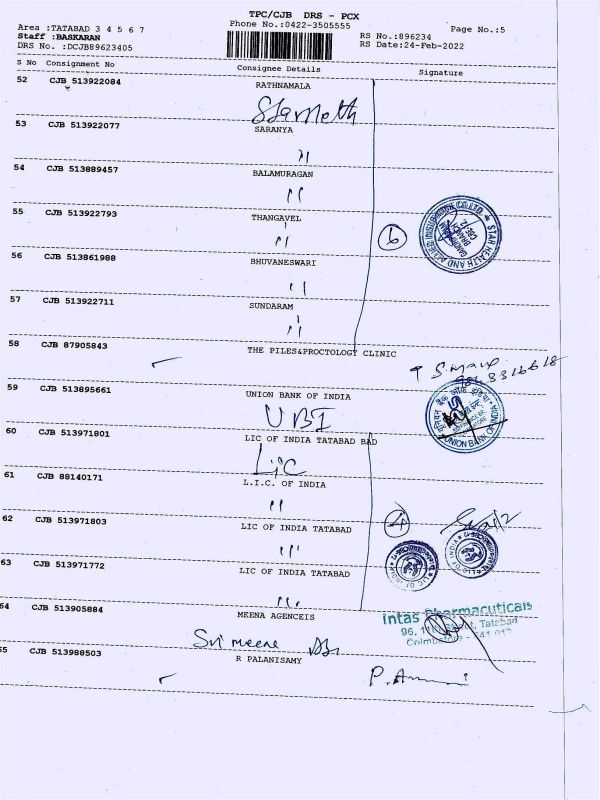 TPC/CJB DRS - PCX
Area :TATABAD 3 4 5 6 7
Phone No.:0422-3505555
Page No.:5
Staff :BASKARAN
RS No.:896234
DRS No. :DCJB89623405
RS Date:24-Feb-2022
S No Consignment No Consignee Details Signature
52 CJB 513922084 RATHNAMALA
53 CJB 513922077 SARANYA
54 CJB 513889457 BALAMURAGAN
55 CJB 513922793 THANGAVEL
6
STAR HEALTH AND ALLIED INSURANCE CO LTD
56 CJB 513861988 BHUVANESWARI
57 CJB 513922711 SUNDARAM
58 CJB 87905843 THE PILES&PROCTOLOGY CLINIC
59 CJB 513895661 UNION BANK OF INDIA
UBI
UNION BANK OF INDIA
60 CJB 513971801 LIC OF INDIA TATABAD BAD
LIC
61 CJB 88140171 L.I.C. OF INDIA
62 CJB 513971803 LIC OF INDIA TATABAD
4
LIC OF INDIA
LIC OF INDIA
63 CJB 513971772 LIC OF INDIA TATABAD
64 CJB 513905884 MEENA AGENCEIS
Sri meena
Intas Pharmacuticals
96, Street, Tatabad
Coimbatore
65 CJB 513988503 R PALANISAMY